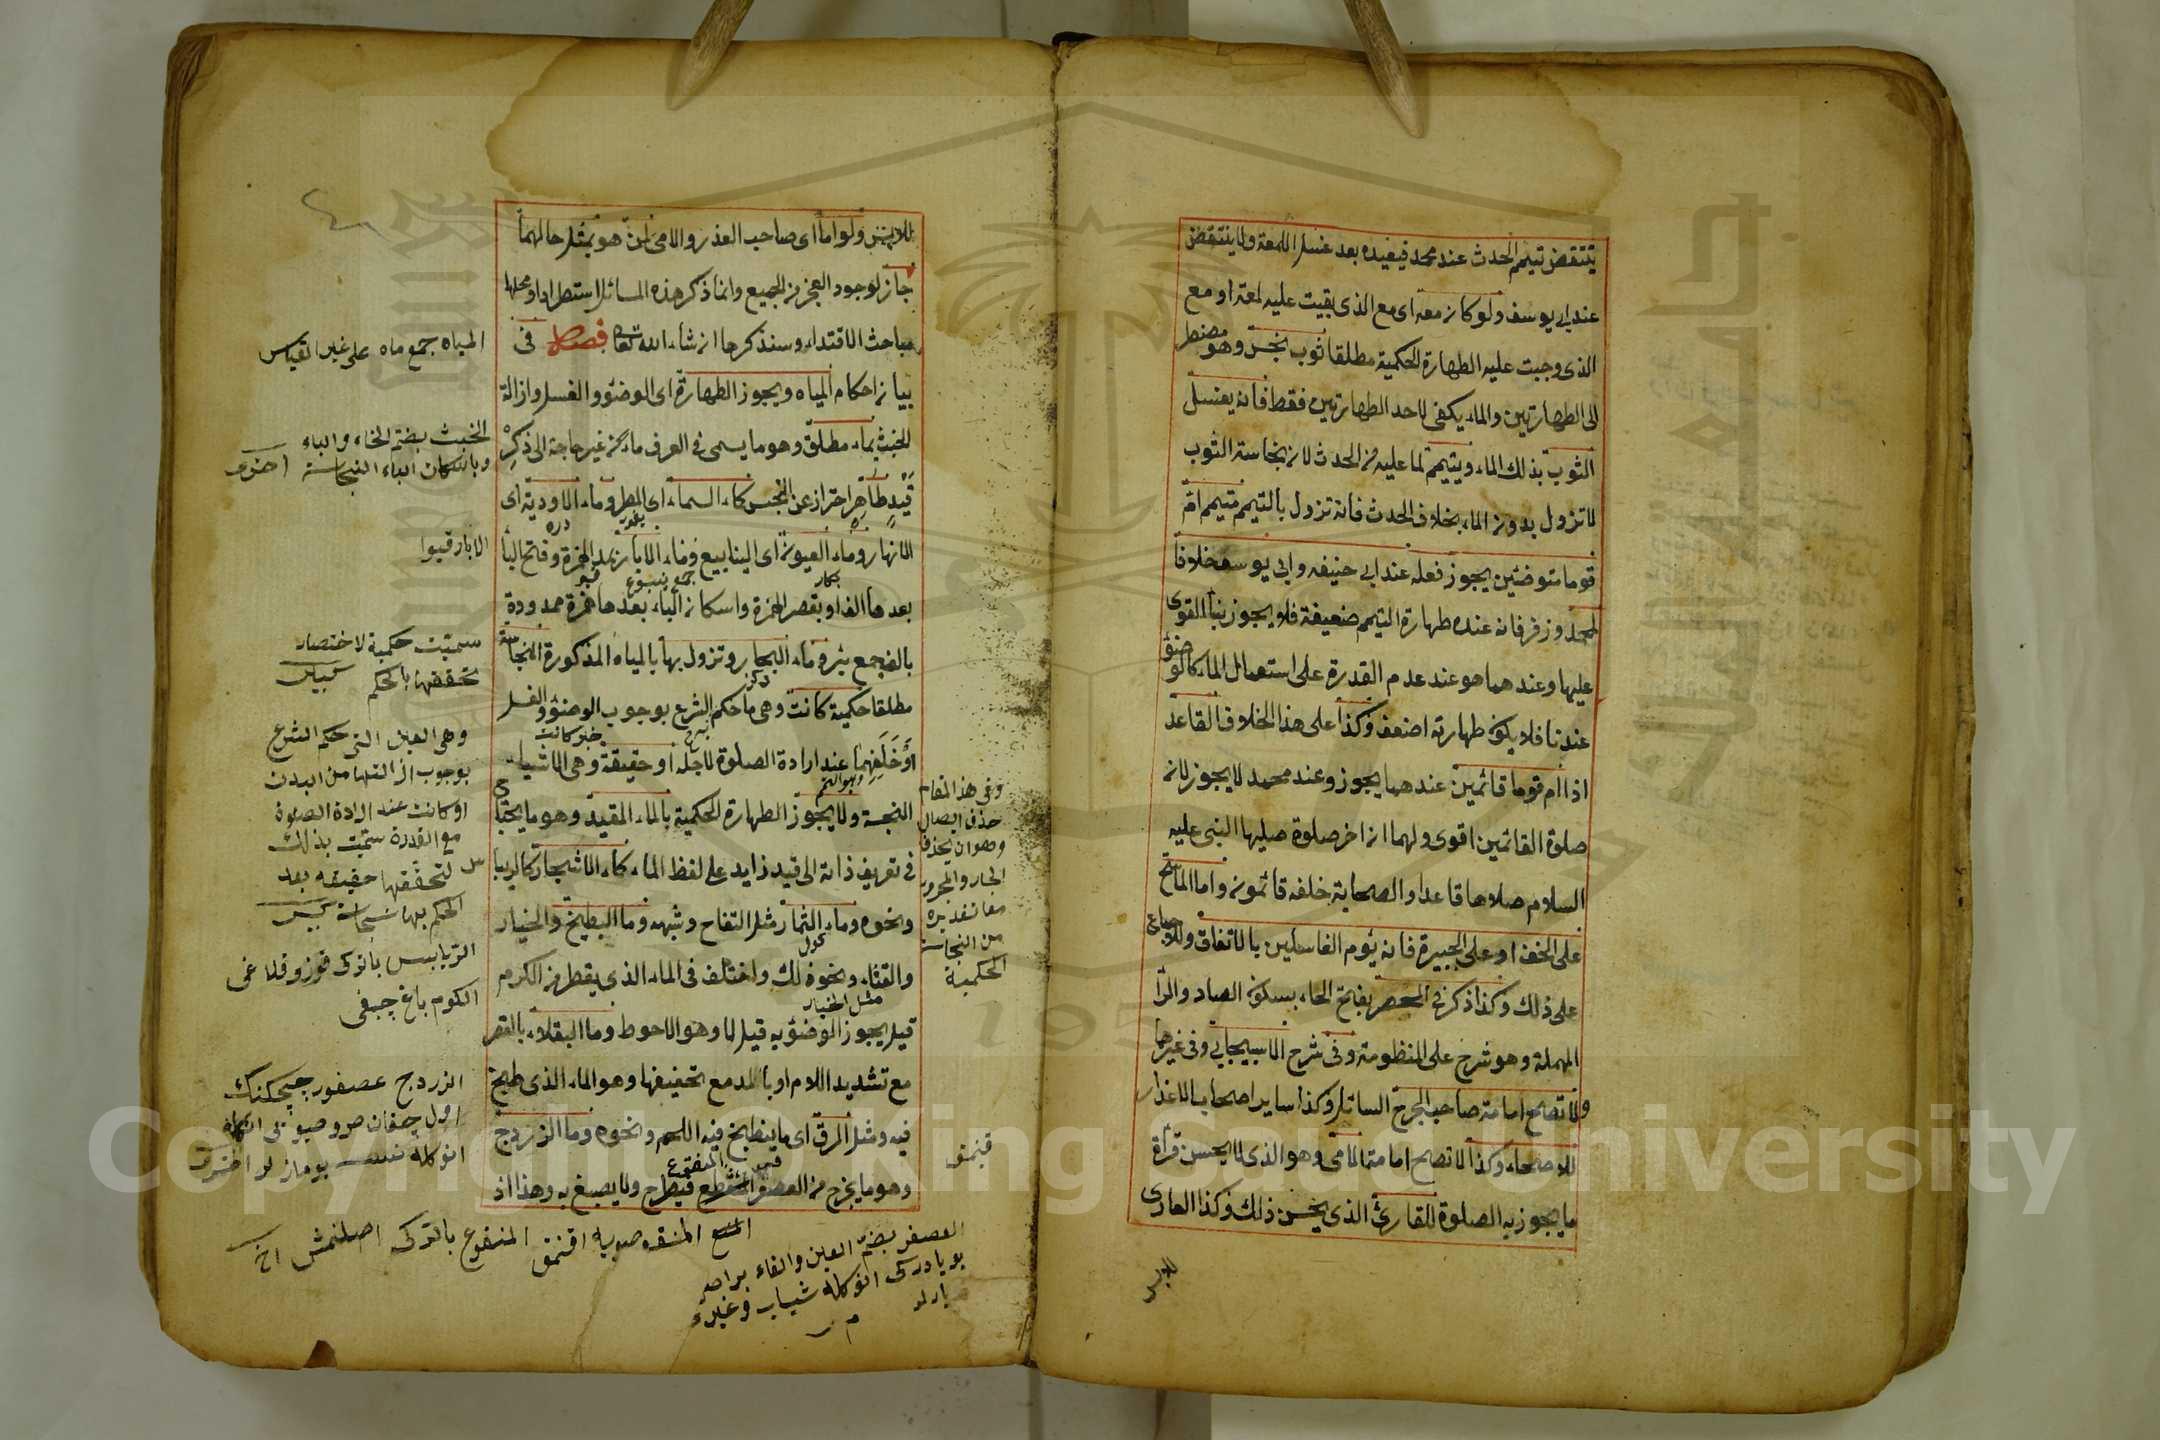 ينتقض تيمم الحدث عند محمد فيعيده بعد غسل اللمعة ولا ينتقض
عند ابي يوسف ولو كان معه اي مع الذي بقيت عليه لمعة او مع
الذي وجبت عليه الطهارة الحكمية مطلقا ثوب نجس وهو مضطر
الى الطهارتين والماء يكفي لاحد الطهارتين فقط فانه يغسل
الثوب بذلك الماء ويتيمم لما عليه من الحدث لان نجاسة الثوب
لا تزول بدون الماء بخلاف الحدث فانه تزول بالتيمم متيمم ام
قوما متوضئين يجوز فعله عند ابي حنيفه وابي يوسف خلافا
لمحمد وزفر فانه عنده طهارة التيمم ضعيفة فلا يجوز بناء القوى
عليها وعندهما هو عند عدم القدرة على استعمال الماء كالوضوء
عندنا فلا يكون طهارته اضعف وكذا على هذا الخلاف القاعد
اذا ام قوما قائمين عندهما يجوز وعند محمد لا يجوز لان
صلوة القائمين اقوى ولهما ان اخر صلوة صليها النبي عليه
السلام صلاها قاعدا والصحابة خلفه قائمون واما الماسح
على الخف او على الجبيرة فانه يؤم الغاسلين بالاتفاق وللاجماع
على ذلك وكذا ذكر في الحصر بفتح الحاء بسكون الصاد والرآ
المهملة وهو شرح على المنظومة وفى شرح الاسبيجابي وفى غيرهما
ولا تصح امامة صاحب الجرح السائل وكذا ساير اصحاب الاعذار
للاصحاء وكذا لا تصح امامة الامي وهو الذي لا يحسن قرأة
ما يجوز به الصلوة للقارئ الذي يحسن ذلك وكذا العارى
للابس
للابس ولو اما اي صاحب العذر والامي لمن هو بمثل حالهما
جاز لوجود العجز من الجميع وانما ذكر هذه المسائل استطرادا ومحلها
مباحث الاقتداء وسنذكرها ان شاء الله تعالى فصل فى
بيان احكام المياه ويجوز الطهارة اي الوضوء والغسل وازالة
الخبث بماء مطلق وهو ما يسمى في العرف ماء من غير حاجة الى ذكر
قيد طاهر احتراز عن النجس كماء السماء اي المطر وماء الاودية اى
الانهار وماء العيون اى الينابيع وماء الابار بمد الهمزة وفتح البا
بعدها الف او بقصر الهمزة واسكان الباء بعدها همزة ممدودة
بالف جمع بئر وماء البحار وتزول بها بالمياه المذكورة النجاسة
مطلقا حكمية كانت وهى ما حكم الشرع بوجوب الوضوء والغسل
او خلفهما عند ارادة الصلوة لاجله او حقيقة وهى الاشياء
النجسة ولا يجوز الطهارة الحكمية بالماء المقيد وهو ما يحتاج
في تعريف ذاته الى قيد زايد على لفظ الماء كماء الاشجار كالريباس
ونحوه وماء الثمار مثل التفاح وشبهه وماء البطيخ والخيار
والقثاء ونحو ذلك واختلف فى الماء الذى يقطر من الكرم
قيل يجوز الوضوء به قيل لا وهو الاحوط وماء الباقلاء بالقصر
مع تشديد اللام او بالمد مع تخفيفها وهو الماء الذى طبخ
فيه ومثل المرق اى ما ينطبخ فيه اللحم ونحوه وماء الزردج
وهو ما يخرج من العصفر المنقوع فيطرح ولا يصبغ به وهذا اذ
المياه جمع ماه على غير القياس
الخبث بضم الخاء والباء
وباسكان الباء النجاسة
سميت حكمية لاختصار
تحققها بالحكم
وهى العين التى حكم الشرع
بوجوب ازالتها من البدن
او كانت عند ارادة الصلوة
مع القدرة سميت بذلك
لتحققها حقيقه بعد
الحكم بها نجاسة كبير
وفي هذا المقام
حذف ايصال
وهو ان يحذف
الجار والمجرور
معا تقديره
من النجاسة
الحكمية
الكوم باغ چبغى
الزردج عصفور
المنقوع بالتركى اصلنمش
العصفر بضم العين والفاء
Copyright © King Saud University